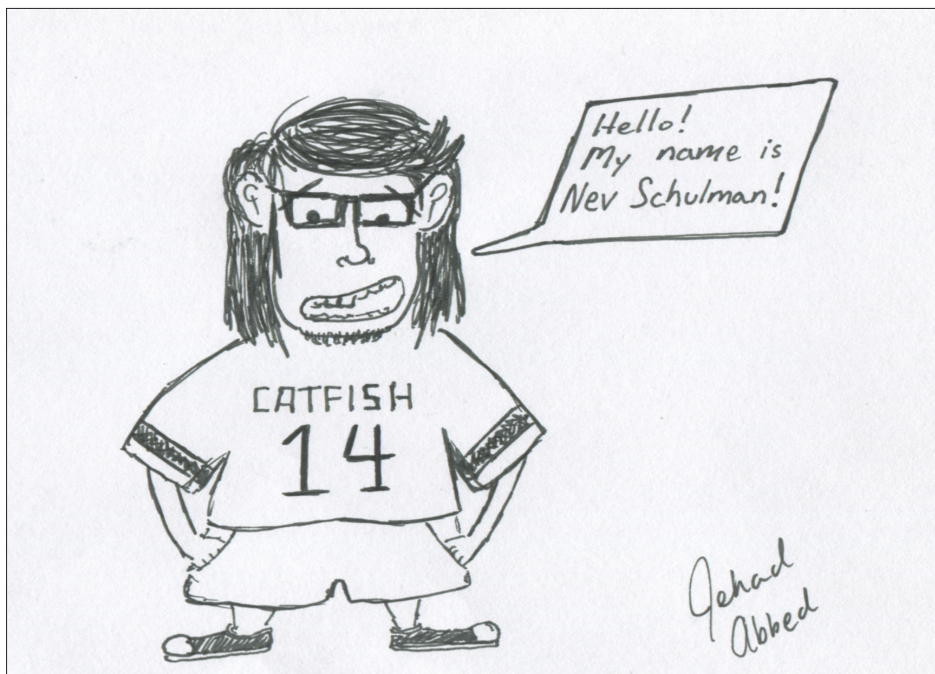 Hello!
My name is
Nev Schulman!
CATFISH
14
Jehad
Abbed